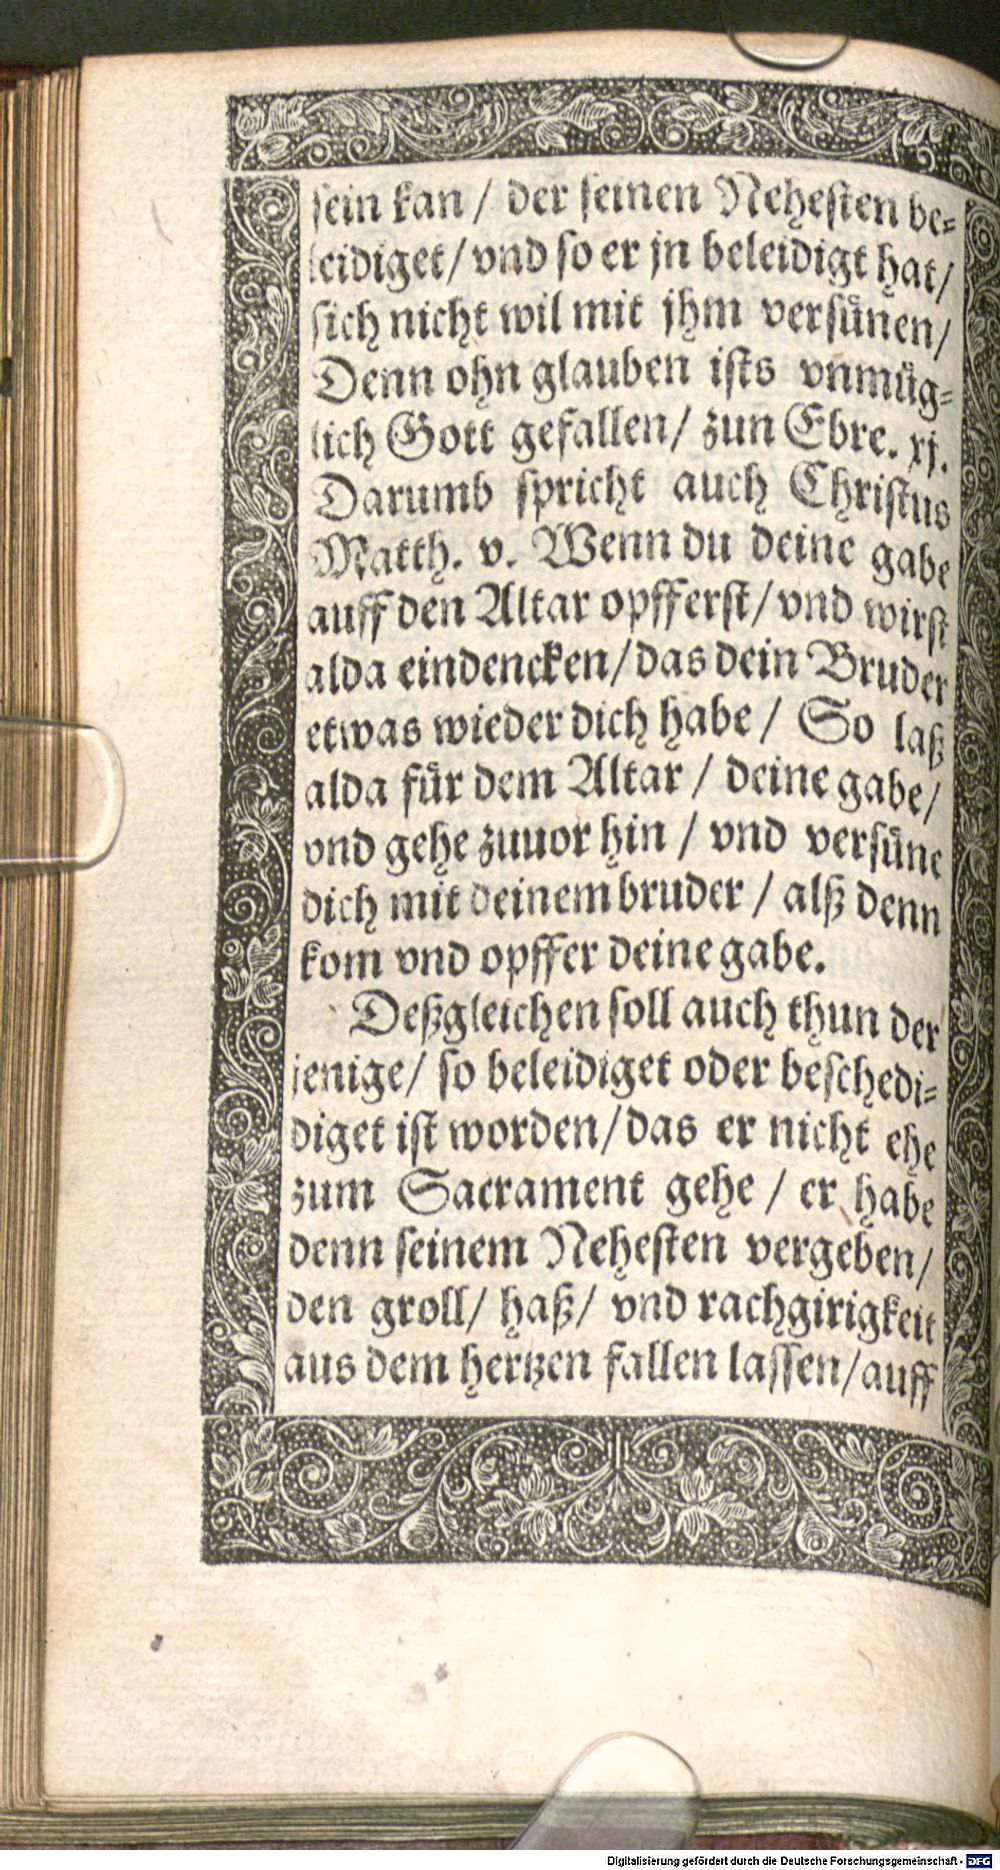 sein kan / der seinen Nehesten be⸗
leidiget / vnd so er jn beleidigt hat /
sich nicht wil mit jhm versünen /
Denn ohn glauben ists vnmüg⸗
lich Gott gefallen / zun Ebre. xj.
Darumb spricht auch Christus
Matth. v. Wenn du deine gabe
auff den Altar opfferst / vnd wirst
alda eindencken / das dein Bruder
etwas wieder dich habe / So laß
alda für dem Altar / deine gabe /
vnd gehe zuuor hin / vnd versüne
dich mit deinem bruder / alß denn
kom vnd opffer deine gabe.
Deßgleichen soll auch thun der
jenige / so beleidiget oder beschedi⸗
diget ist worden / das er nicht ehe
zum Sacrament gehe / er habe
denn seinem Nehesten vergeben /
den groll / haß / vnd rachgirigkeit
aus dem hertzen fallen lassen / auff
Digitalisierung gefördert durch die Deutsche Forschungsgemeinschaft - DFG